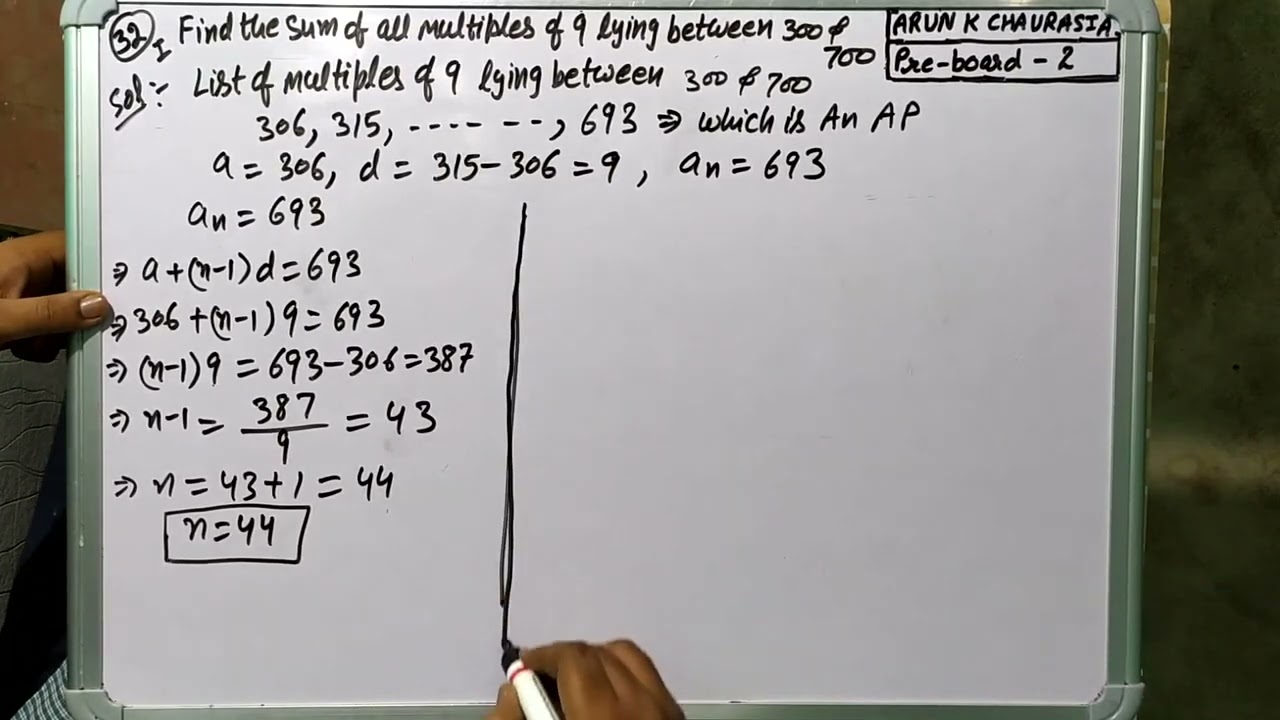 32, I Find the sum of all multiples of 9 lying between 300 & 700
ARUN K CHAURASIA
Pre-board - 2
Sol:- List of multiples of 9 lying between 300 & 700
306, 315, ---- --, 693 ⇒ which is An AP
a = 306, d = 315-306 = 9, an = 693
an = 693
⇒ a+(n-1)d=693
⇒ 306+(n-1)9=693
⇒ (n-1)9 = 693-306=387
⇒ n-1 = 387/9 = 43
⇒ n = 43+1 = 44
n=44